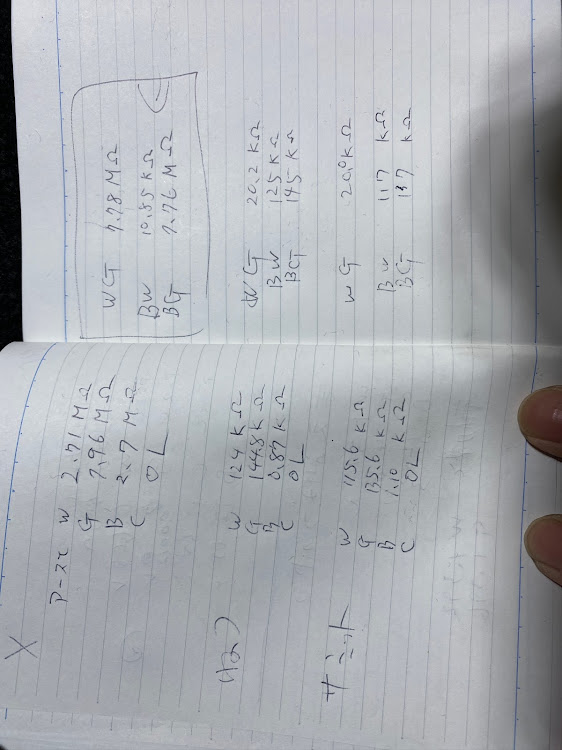 X
アース W 2.71 MΩ
G 7.96 MΩ
B 2.7 MΩ
C OL
W 124 kΩ
G 144.8 kΩ
B 0.87 kΩ
C OL
サミット W 115.6 kΩ
G 135.6 kΩ
B 1.10 kΩ
C OL
WG 7.78 MΩ
BW 10.85 kΩ
BG 7.76 MΩ
WG 20.2 kΩ
BW 125 kΩ
BG 145 kΩ
WG 20.0 kΩ
BW 117 kΩ
BG 137 kΩ